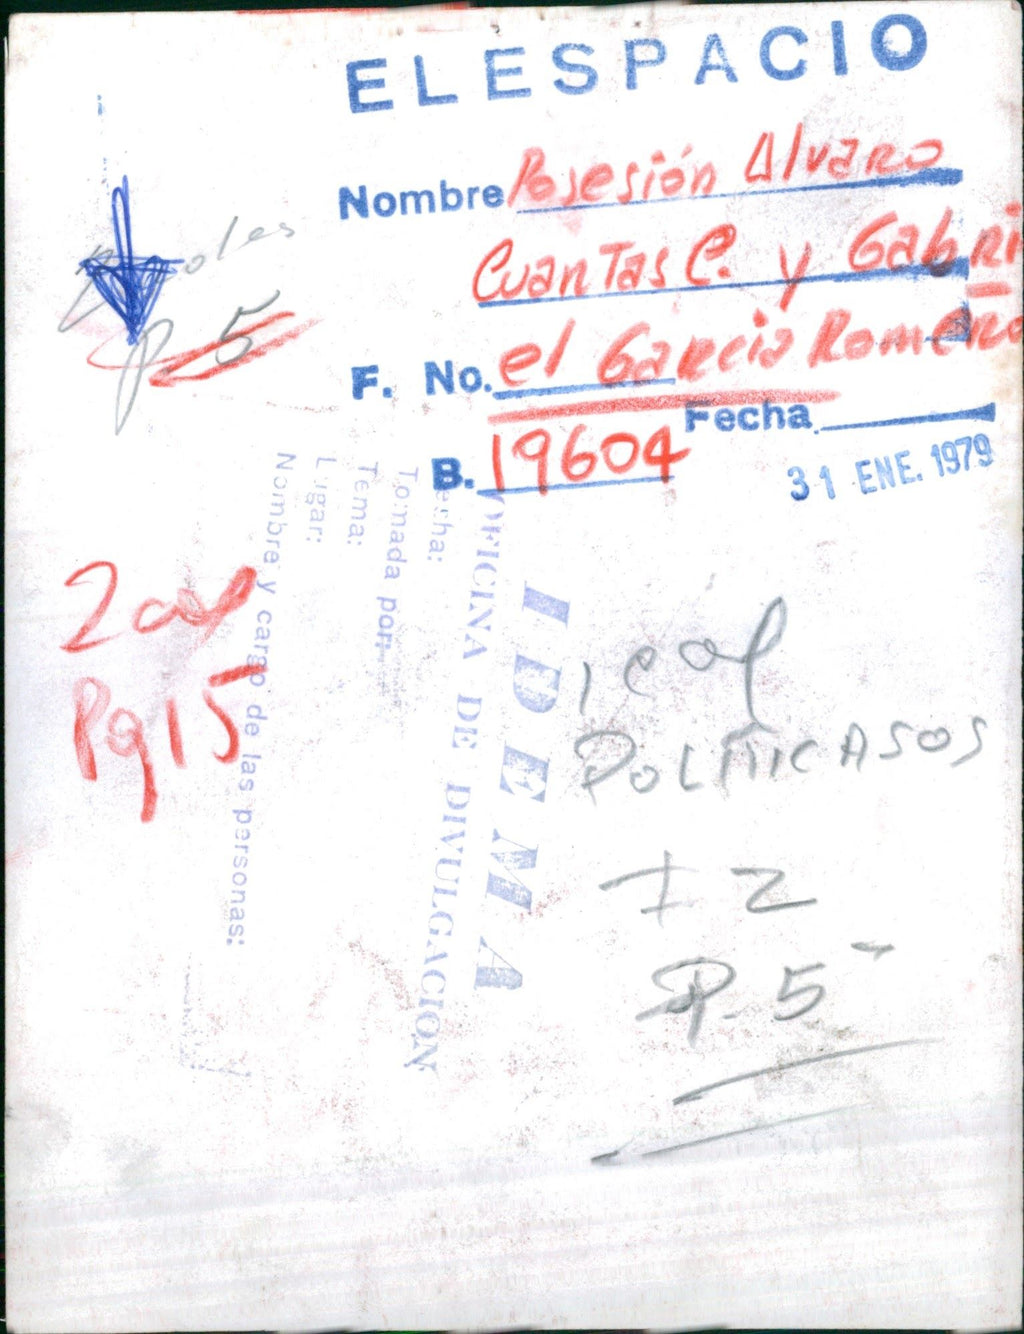 EL ESPACIO
Nombre Posesión Alvaro
Cuantas C. y Gabri
el Garcia Romero
F. No.
Fecha
B. 19604
31 ENE. 1979
p 5
2 col
Pg 15
IDEMA
OFICINA DE DIVULGACION
echa:
Tomada por:
Tema:
Lugar:
Nombre y cargo de las personas:
1 col
POLITICASOS
P. 5